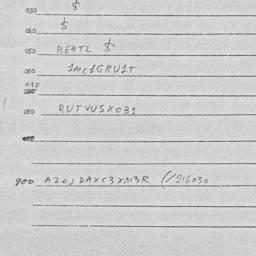 030 $
040 $
050 RE4TL $
060 1MC1GRU1T
070
080 RUTVUSXOB1
900 A20J DAXC3XM3R (/216030